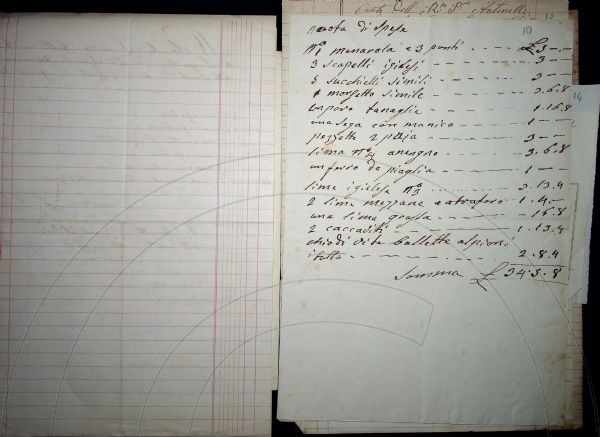 Conto Coll. R. P. Antonelli
10
navota di spesa
N° 1 menarola e 3 ponti £ 3 —
3 scapelli iglesi 3 —
3 succhielli simili 3 —
1 morsetto simile 2.6.8
un paro tanaglie 1.16.8
una sega con manico 1 —
pezzette 2 3 —
lima N° 4 3.6.8
un ferro da piaglia 1 —
lime iglesa N° 3 2.13.4
2 lime mezzane e atraforo 1.4 —
una lima grossa 16.8
2 caccaditi 1.13.4
chiodi vite ballette
itutto 2.8.4
somma £ 34.5.8
14